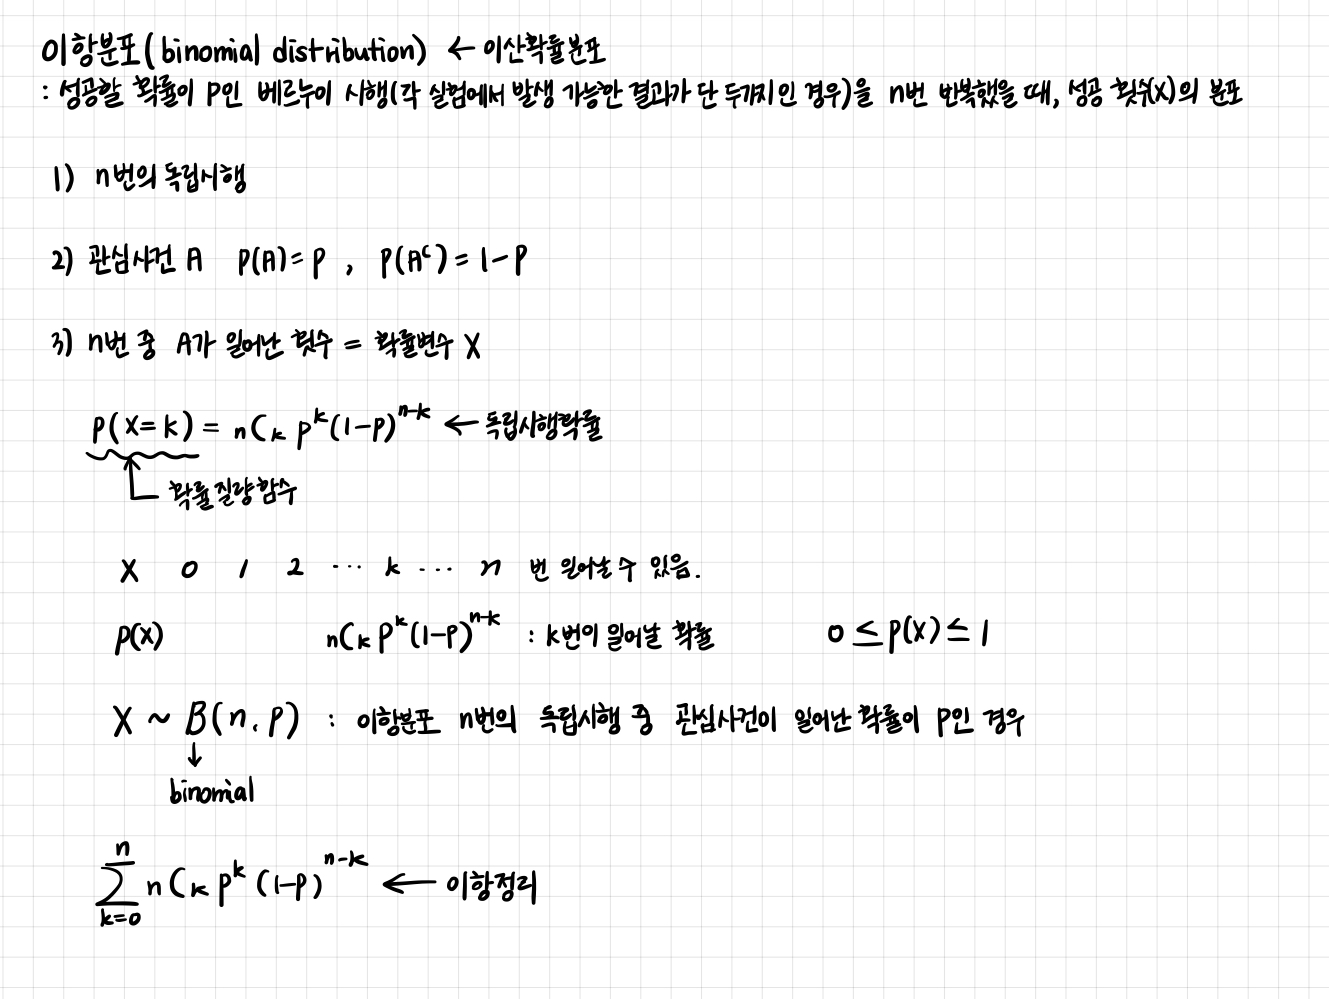 이항분포(binomial distribution) ← 이산확률분포
: 성공할 확률이 P인 베르누이 시행(각 실험에서 발생 가능한 결과가 단 두가지인 경우)을 n번 반복했을 때, 성공 횟수(X)의 분포
1) n번의 독립시행
2) 관심사건 A P(A)=P , P(A^c)=1-P
3) n번 중 A가 일어난 횟수 = 확률변수 X
P(X=k) = nCk p^k(1-p)^n-k ← 독립시행확률
확률질량함수
X 0 1 2 ... k ... n 번 일어날 수 있음.
P(X) nCk P^k(1-P)^n-k : k번이 일어날 확률 0≤P(X)≤1
X ~ B(n, p) : 이항분포 n번의 독립시행 중 관심사건이 일어난 확률이 P인 경우
↓
binomial
n
∑ nCk P^k (1-P)^n-k ← 이항정리
k=0